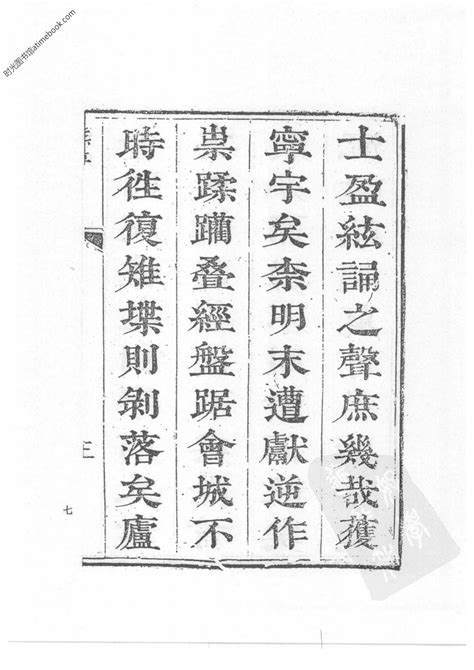 时光图书馆atimebook.com
士盈絃誦之聲庶幾哉獲
寧宇矣柰明末遭獻逆作
祟蹂躪叠經盤踞會城不
時徃復雉堞則剝落矣廬
三
七